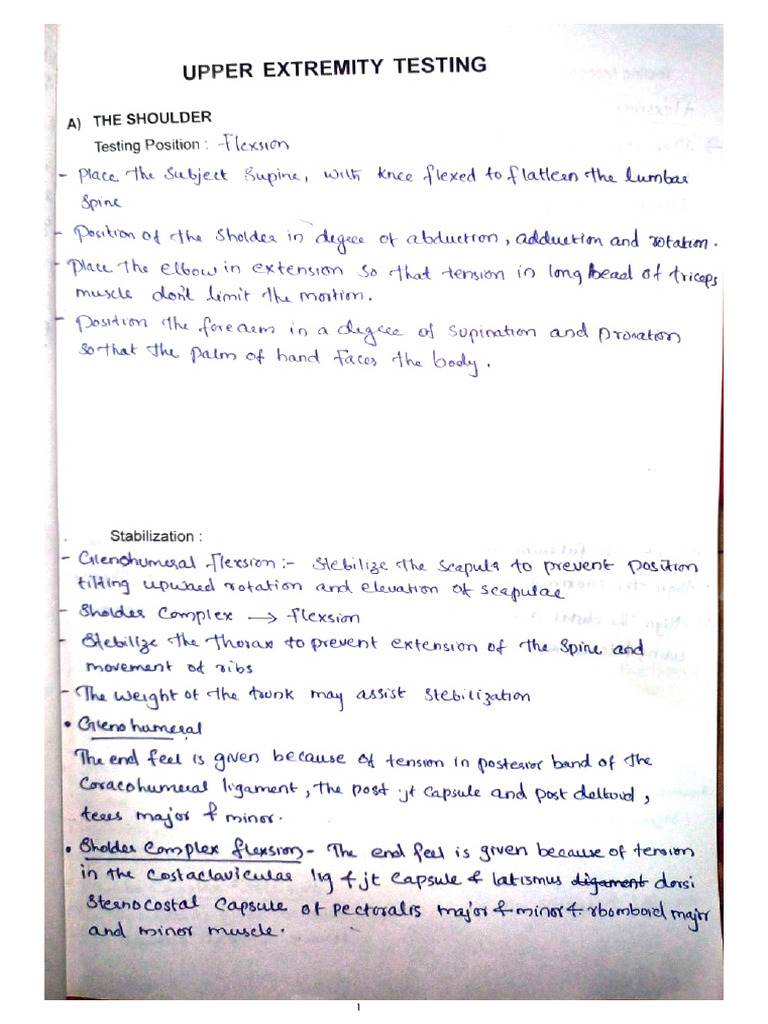 UPPER EXTREMITY TESTING
A) THE SHOULDER
Testing Position : Flexsion
- Place the Subject Supine, with knee flexed to flatleen the lumbar
Spine
- Position of the Sholder in degree of abduction, adduction and rotation.
- Place the elbow in extension so that tension in long head of triceps
muscle don't limit the mortion.
- Position the forearm in a degree of supination and pronation
so that the palm of hand faces the body.
Stabilization :
- Glenohumeral flexsion :- Stebilize the scapula to prevent position
tilting upward rotation and elevation of scapulae
- Sholder Complex → flexsion
- Stebilize the thorax to prevent extension of the spine and
movement of ribs
- The weight of the trunk may assist stebilization
• Glenohumeral
The end feel is given because of tension in posterior band of the
Coracohumeral ligament, the post jt capsule and post deltoid,
teres major & minor.
• Sholder Complex flexsion - The end feel is given because of tension
in the costaclavicular lig & jt capsule & latismus ligament dorsi
Sternocostal Capsule of pectoralis major & minor & rhomboid major
and minor muscle.
1